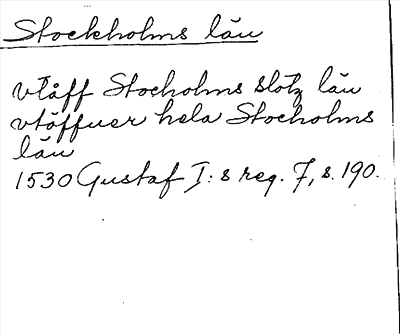 Stockholms län
vtåff Stocholms slotz län
vtöffuer hela Stocholms
län
1530 Gustaf I:s reg. 7, s. 190.